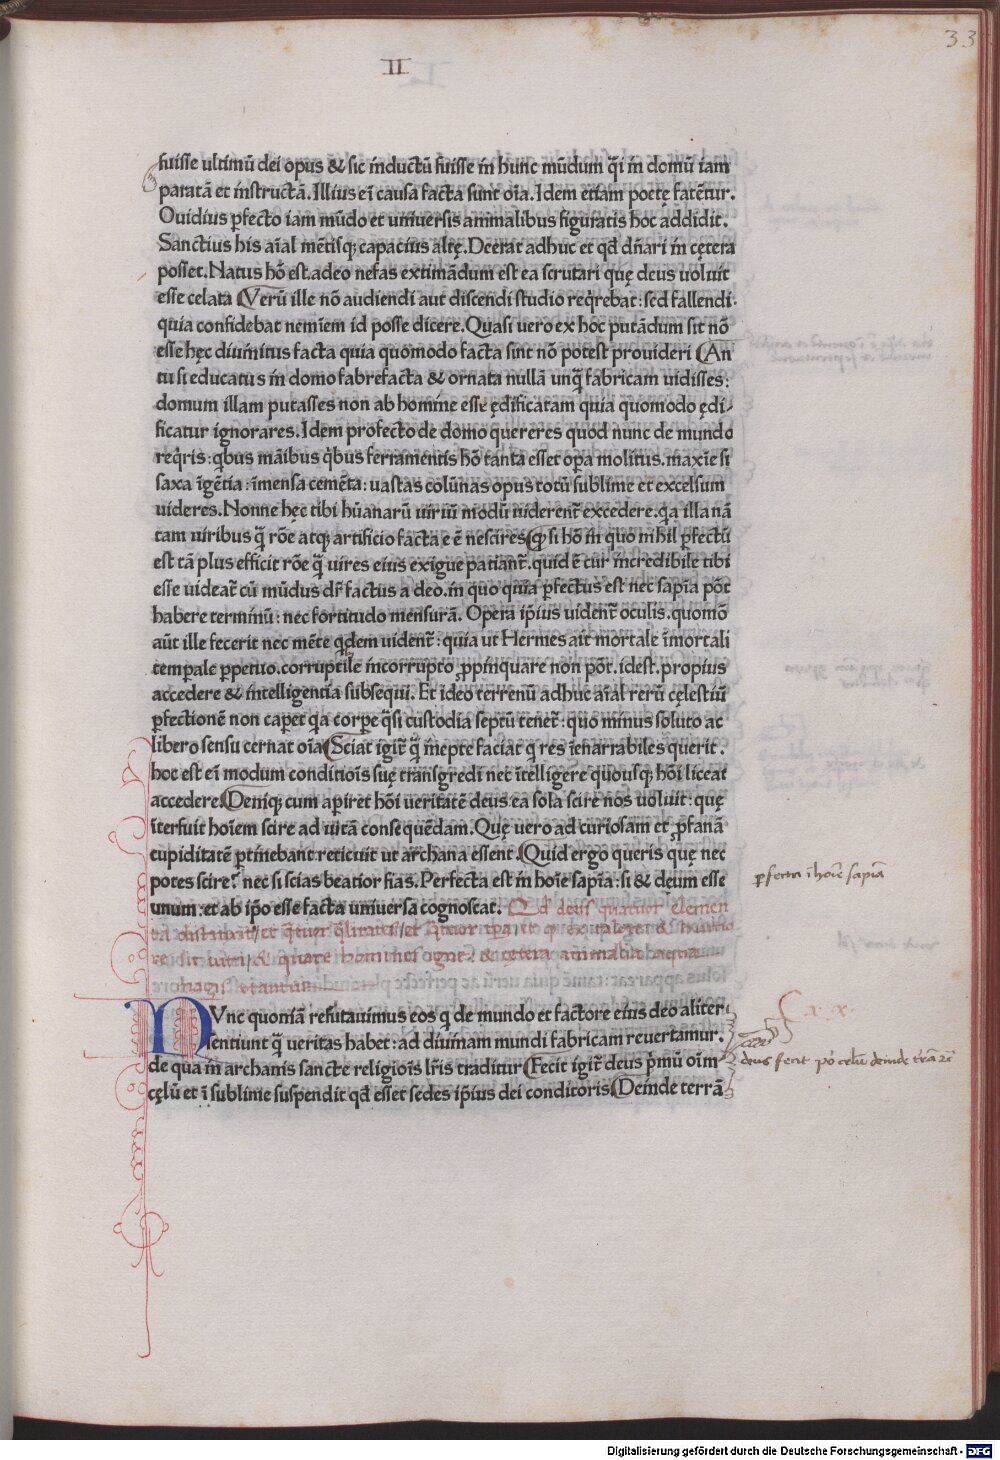 33
II
fuisse ultimũ dei opus & sic inductũ fuisse in hunc mũdum q̃i in domũ iam
paratã et instructã. Illius ei causa facta sunt oĩa. Idem etiam poetę fatẽtur.
Ouidius ꝑfecto iam mũdo et uniuersis animalibus figuratis hoc addidit.
Sanctius his aĩal mẽtisqꝫ capacius altę. Deerat adhuc et qđ dñari in cętera
posset. Natus hõ est. adeo nefas extimãdum est ea scrutari quę deus uoluit
esse celata Verũ ille nõ audiendi aut discendi studio reqrebat: sed fallendi.
quia confidebat neminem id posse dicere. Quasi uero ex hoc putãdum sit nõ
esse hęc diuinitus facta quia quomodo facta sint nõ potest prouideri An
tu si educatus in domo fabrefacta & ornata nullã unq̃ fabricam uidisses:
domum illam putasses non ab homine esse ędificatam quia quomodo ędi-
ficatur ignorares. Idem profecto de domo quereres quod nunc de mundo
reqris: qbus mãibus qbus ferramentis hõ tanta esset oꝑa molitus. maxie si
saxa ĩgẽtia: ĩmensa cemẽta: uastas colũnas opus totũ sublime et excelsum
uideres. Nonne hęc tibi hũanarũ uiriũ modũ uiderent̃ excedere. qa illa nã
tam uiribus q̃ rõe atqꝫ artificio facta eẽ nescires ꝙ si hõ in quo nihil ꝑfectũ
est tã plus efficit rõe q̃ uires eius exigue patiant̃. quid ẽ cur incredibile tibi
esse uideat̃ cũ mũdus dr̃ factus a deo. in quo quia ꝑfectus est nec sapĩa põt
habere terminũ: nec fortitudo mensurã. Opera ip̃ius uident̃ oculis. quomõ
aũt ille fecerit nec mẽte qdem uident̃: quia ut Hermes ait mortale ĩmortali
temꝑale ꝑpetuo. corruptile incorrupto ꝓpinquare non põt. idest. propius
accedere & intelligentia subsequi. Et ideo terrenũ adhuc aĩal rerũ cęlestiũ
ꝑfectionẽ non capet qa corꝑe q̃si custodia septũ tenet̃: quo minus soluto ac
libero sensu cernat oĩa Sciat igit̃ q̃ inepte faciat q res ĩenarrabiles querit.
hoc est ei modum conditiõis suę transgredi nec ĩtelligere quousqꝫ hõi liceat
accedere Deniqꝫ cum aꝑiret hõi ueritatẽ deus ea sola scire nos uoluit: quę
ĩterfuit hoĩem scire ad uitã consequẽdam. Quę uero ad curiosam et ꝓfanã
cupiditatẽ ꝑtinebant reticuit ut archana essent. Quid ergo queris quę nec
potes scire? nec si scias beatior fias. Perfecta est in hoĩe sapĩa: si & deum esse
unum: et ab ip̃o esse facta uniuersa cognoscat. Qđ deus quatuor elemen
ta distribuit / et
re sit uiri / & quare homines & cętera animalia
ꝑfecta ĩ hoĩe sapĩa
Nunc quoniã refutauimus eos q de mundo et factore eius deo aliter
sentiunt q̃ ueritas habet: ad diuinam mundi fabricam reuertamur.
de qua in archanis sanctę religiõis lr̃is traditur Fecit igit̃ deus p̃mũ oĩm
cęlũ et ĩ sublime suspendit qđ esset sedes ip̃ius dei conditoris Deinde terrã
deus fecit pº celũ deinde
Digitalisierung gefördert durch die Deutsche Forschungsgemeinschaft - DFG